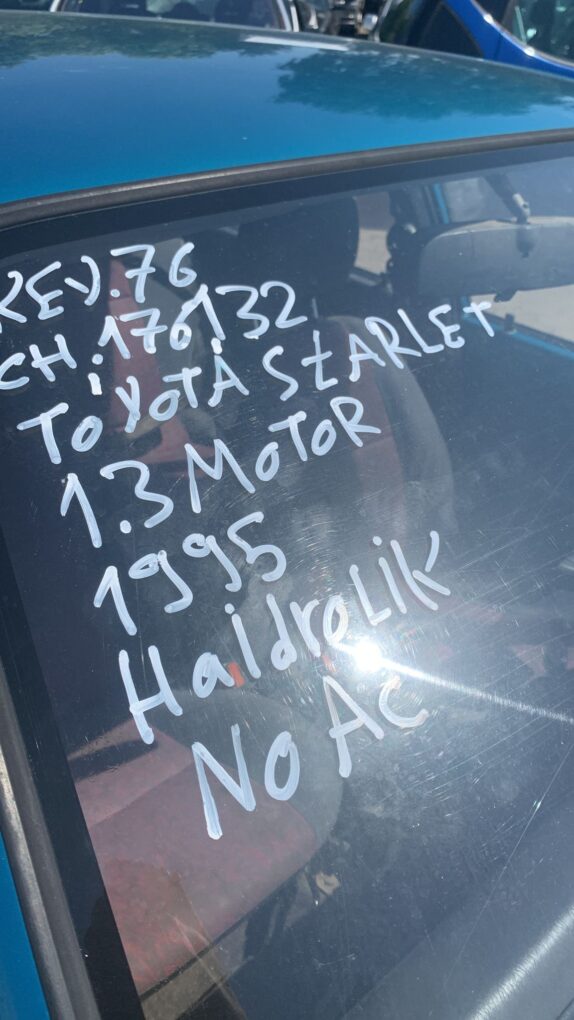 REV.76
CH.176132
TOYOTA STARLET
1.3 MOTOR
1995
HaidroLiK
No AC